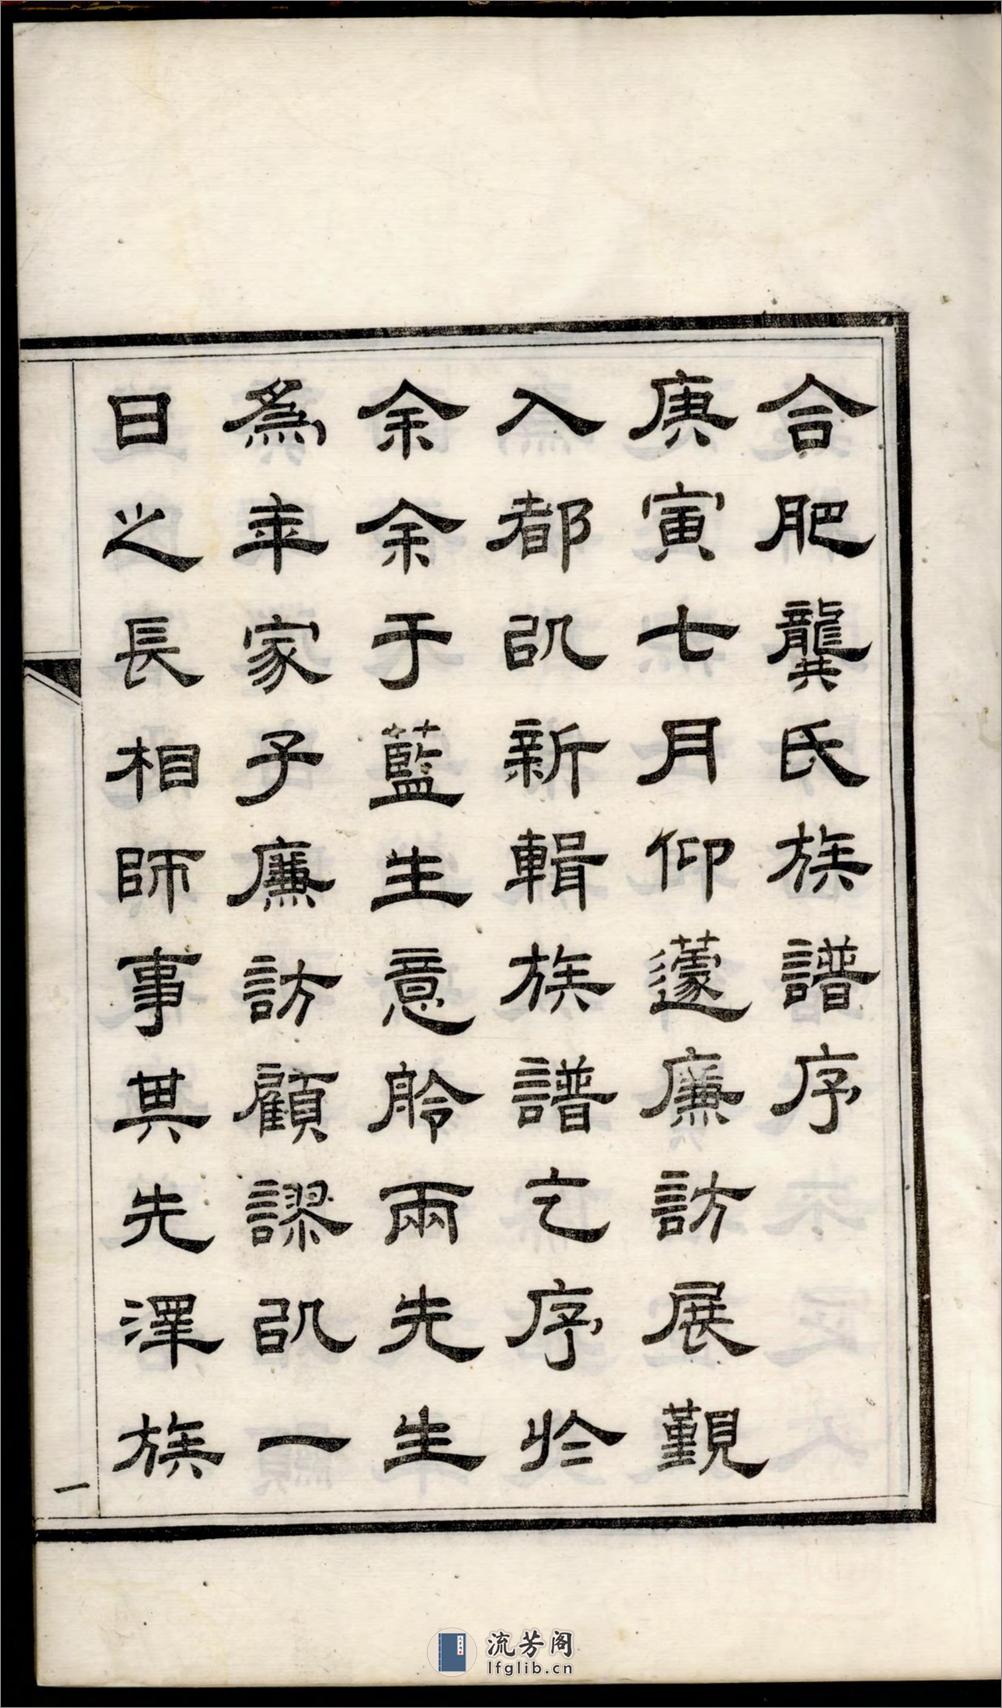 合肥龔氏族譜序
庚寅七月仰蘧廉訪展覲
入都以新輯族譜乞序於
余余于藍生意舲兩先生
為年家子廉訪顧謬以一
日之長相師事其先澤族
一
流芳阁
lfglib.cn